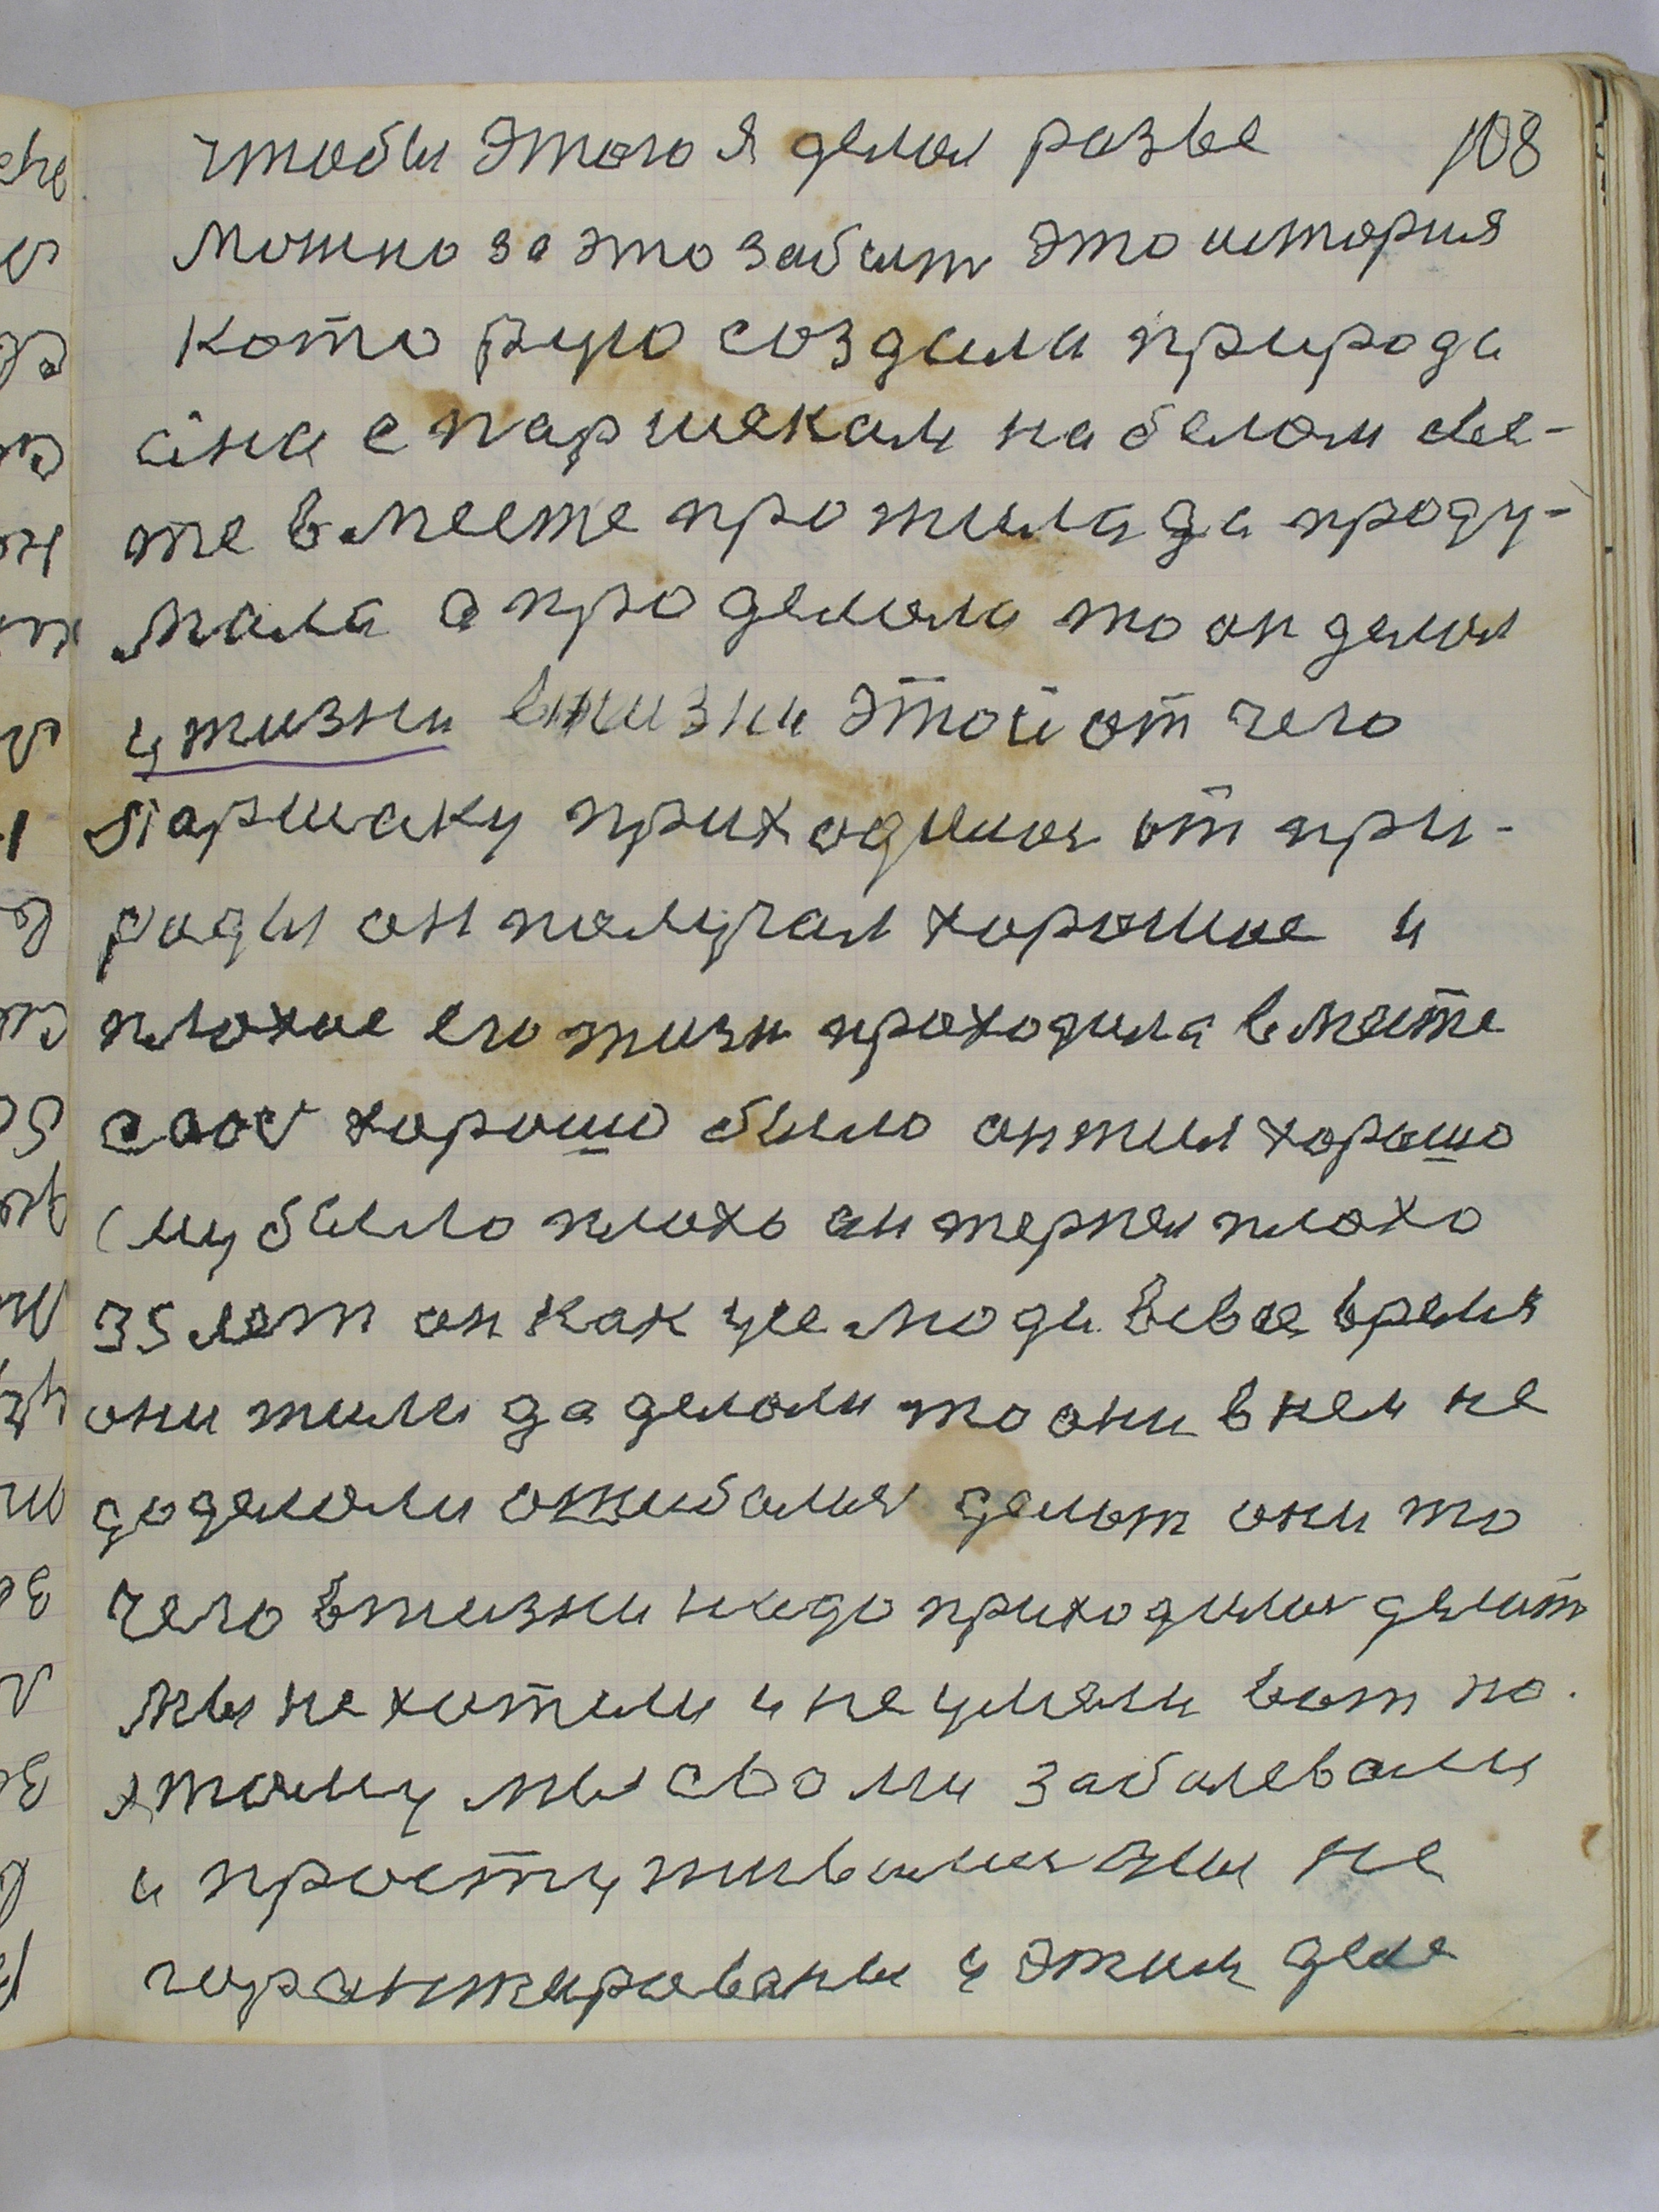 чтобы этого я делал разве 108
можно за это забыт это история
которую создала природа
она с паршеком на белом све-
те вместе прожила да проду-
мала а проделала то он делал
у жизни в жизни этой от чего
Паршаку приходилос от при-
роды он получал хорошое и
плохое его жизн проходила вместе
хорошо было он жил хорошо
ему было плохо он терпел плохо
35 лет он как усе люди все время
они жили да делали то они в нем не
доделали ошибалися делат они то
чего в жизни надо приходилос делат
мы не хотели и не умели вот по
этому мы с вами заболевали
и простуживалис мы не
гарантированы у этим деле